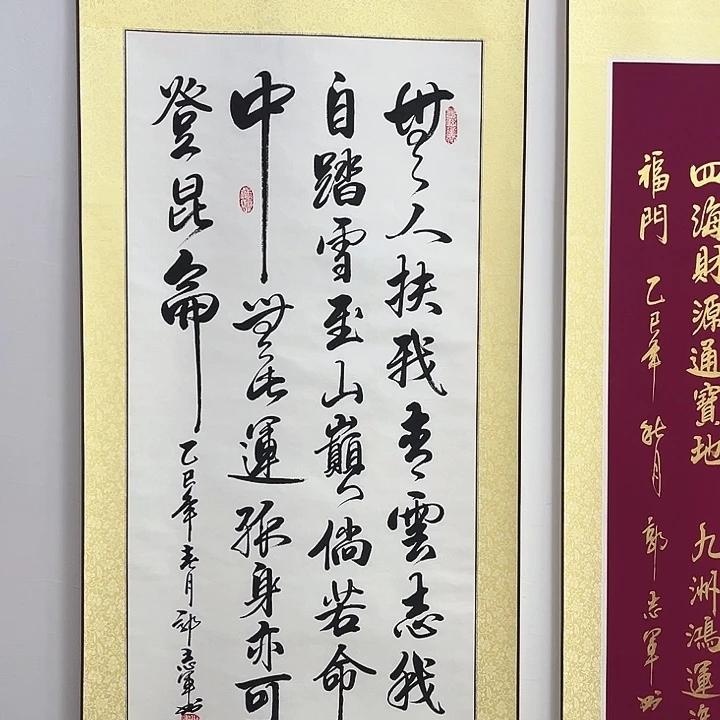 無人扶我青雲志我
自踏雪至山巔倘若命
中無此運孤身亦可
登昆侖
乙巳年春月郭志軍書
四海財源通寶地 九洲鴻運
福門 乙巳年 秋月 郭志軍書